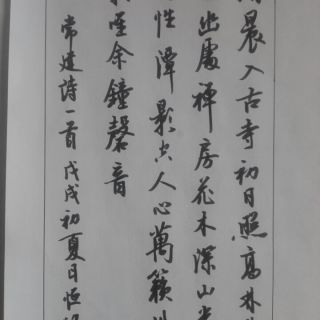 晨入古寺初日照高林
幽處禪房花木深山光
性潭影空人心萬籟
唯余鐘磬音
常建詩一首戊戌初夏日恒